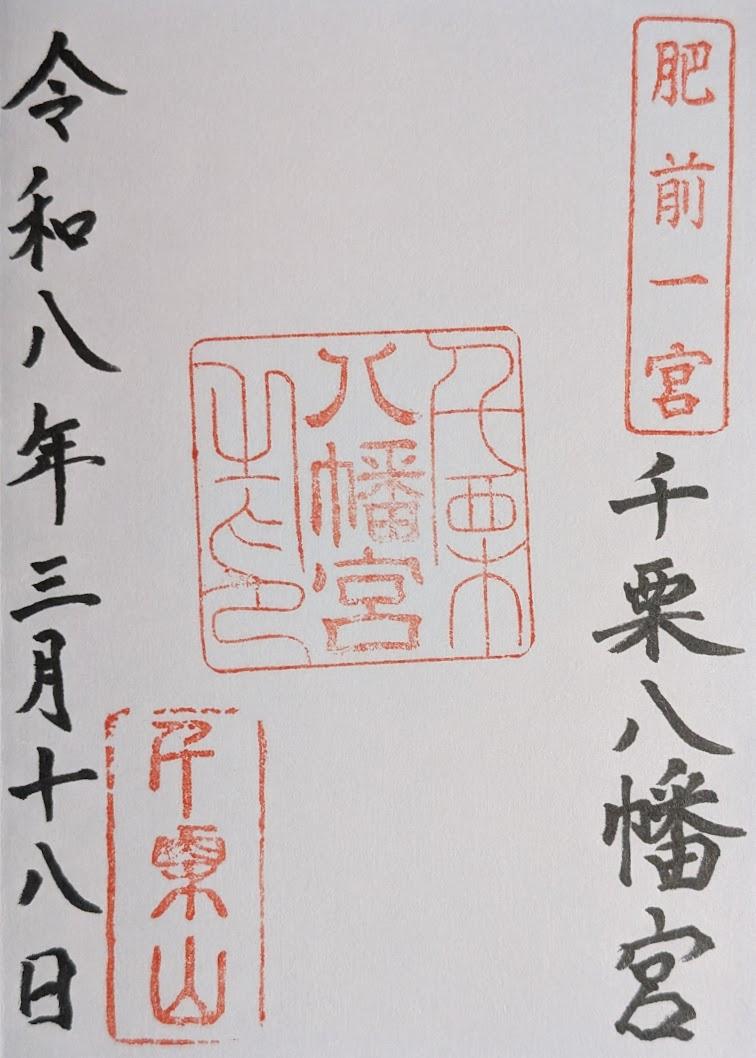 肥前一宮
千栗八幡宮
千栗
八幡宮
之印
千栗山
令和八年三月十八日